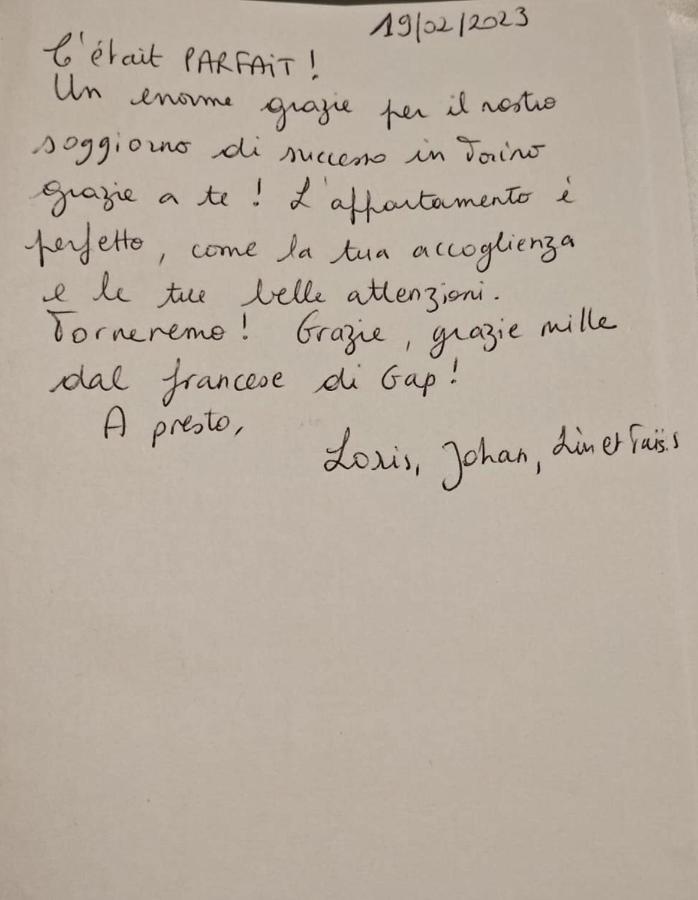 19/02/2023
C'était PARFAiT !
Un enorme grazie per il nostro
soggiorno di successo in Torino
grazie a te ! L'appartamento è
perfetto, come la tua accoglienza
e le tue belle attenzioni.
Torneremo ! Grazie, grazie mille
dal francese di Gap !
A presto,
Loris, Johan, Lin et